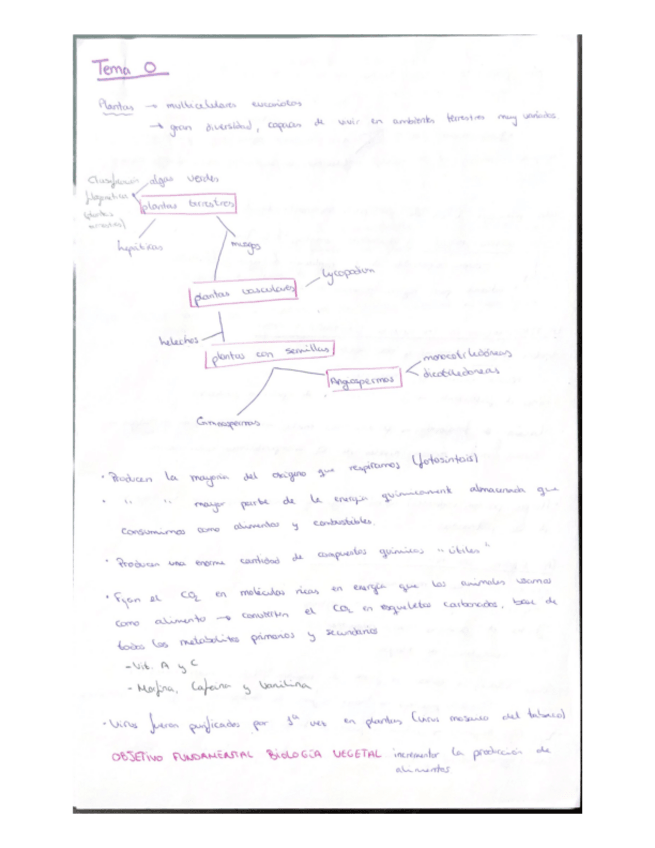 Tema 0
Plantas → multicelulares eucariotas
→ gran diversidad, capaces de vivir en ambientes terrestres muy variados
Clasificación
algas verdes
filogenética
plantas terrestres
(plantas
hepáticas
musgos
plantas vasculares
Lycopodium
helechos
plantas con semillas
monocotiledóneas
Angiospermas
dicotiledóneas
Gimnospermas
· Producen la mayoría del oxígeno que respiramos (fotosíntesis)
· " " mayor parte de la energía químicamente almacenada que
consumimos como alimentos y combustibles.
· Producen una enorme cantidad de compuestos químicos "útiles"
· Fijan el CO2 en moléculas ricas en energía que los animales usamos
como alimento → convierten el CO2 en esqueletos carbonados, base de
todos los metabolitos primarios y secundarios
- Vit. A y C
- Morfina, Cafeína y Vanilina
· Virus fueron purificados por 1ª vez en plantas (virus mosaico del tabaco)
OBJETIVO FUNDAMENTAL BIOLOGÍA VEGETAL incrementar la producción de
alimentos